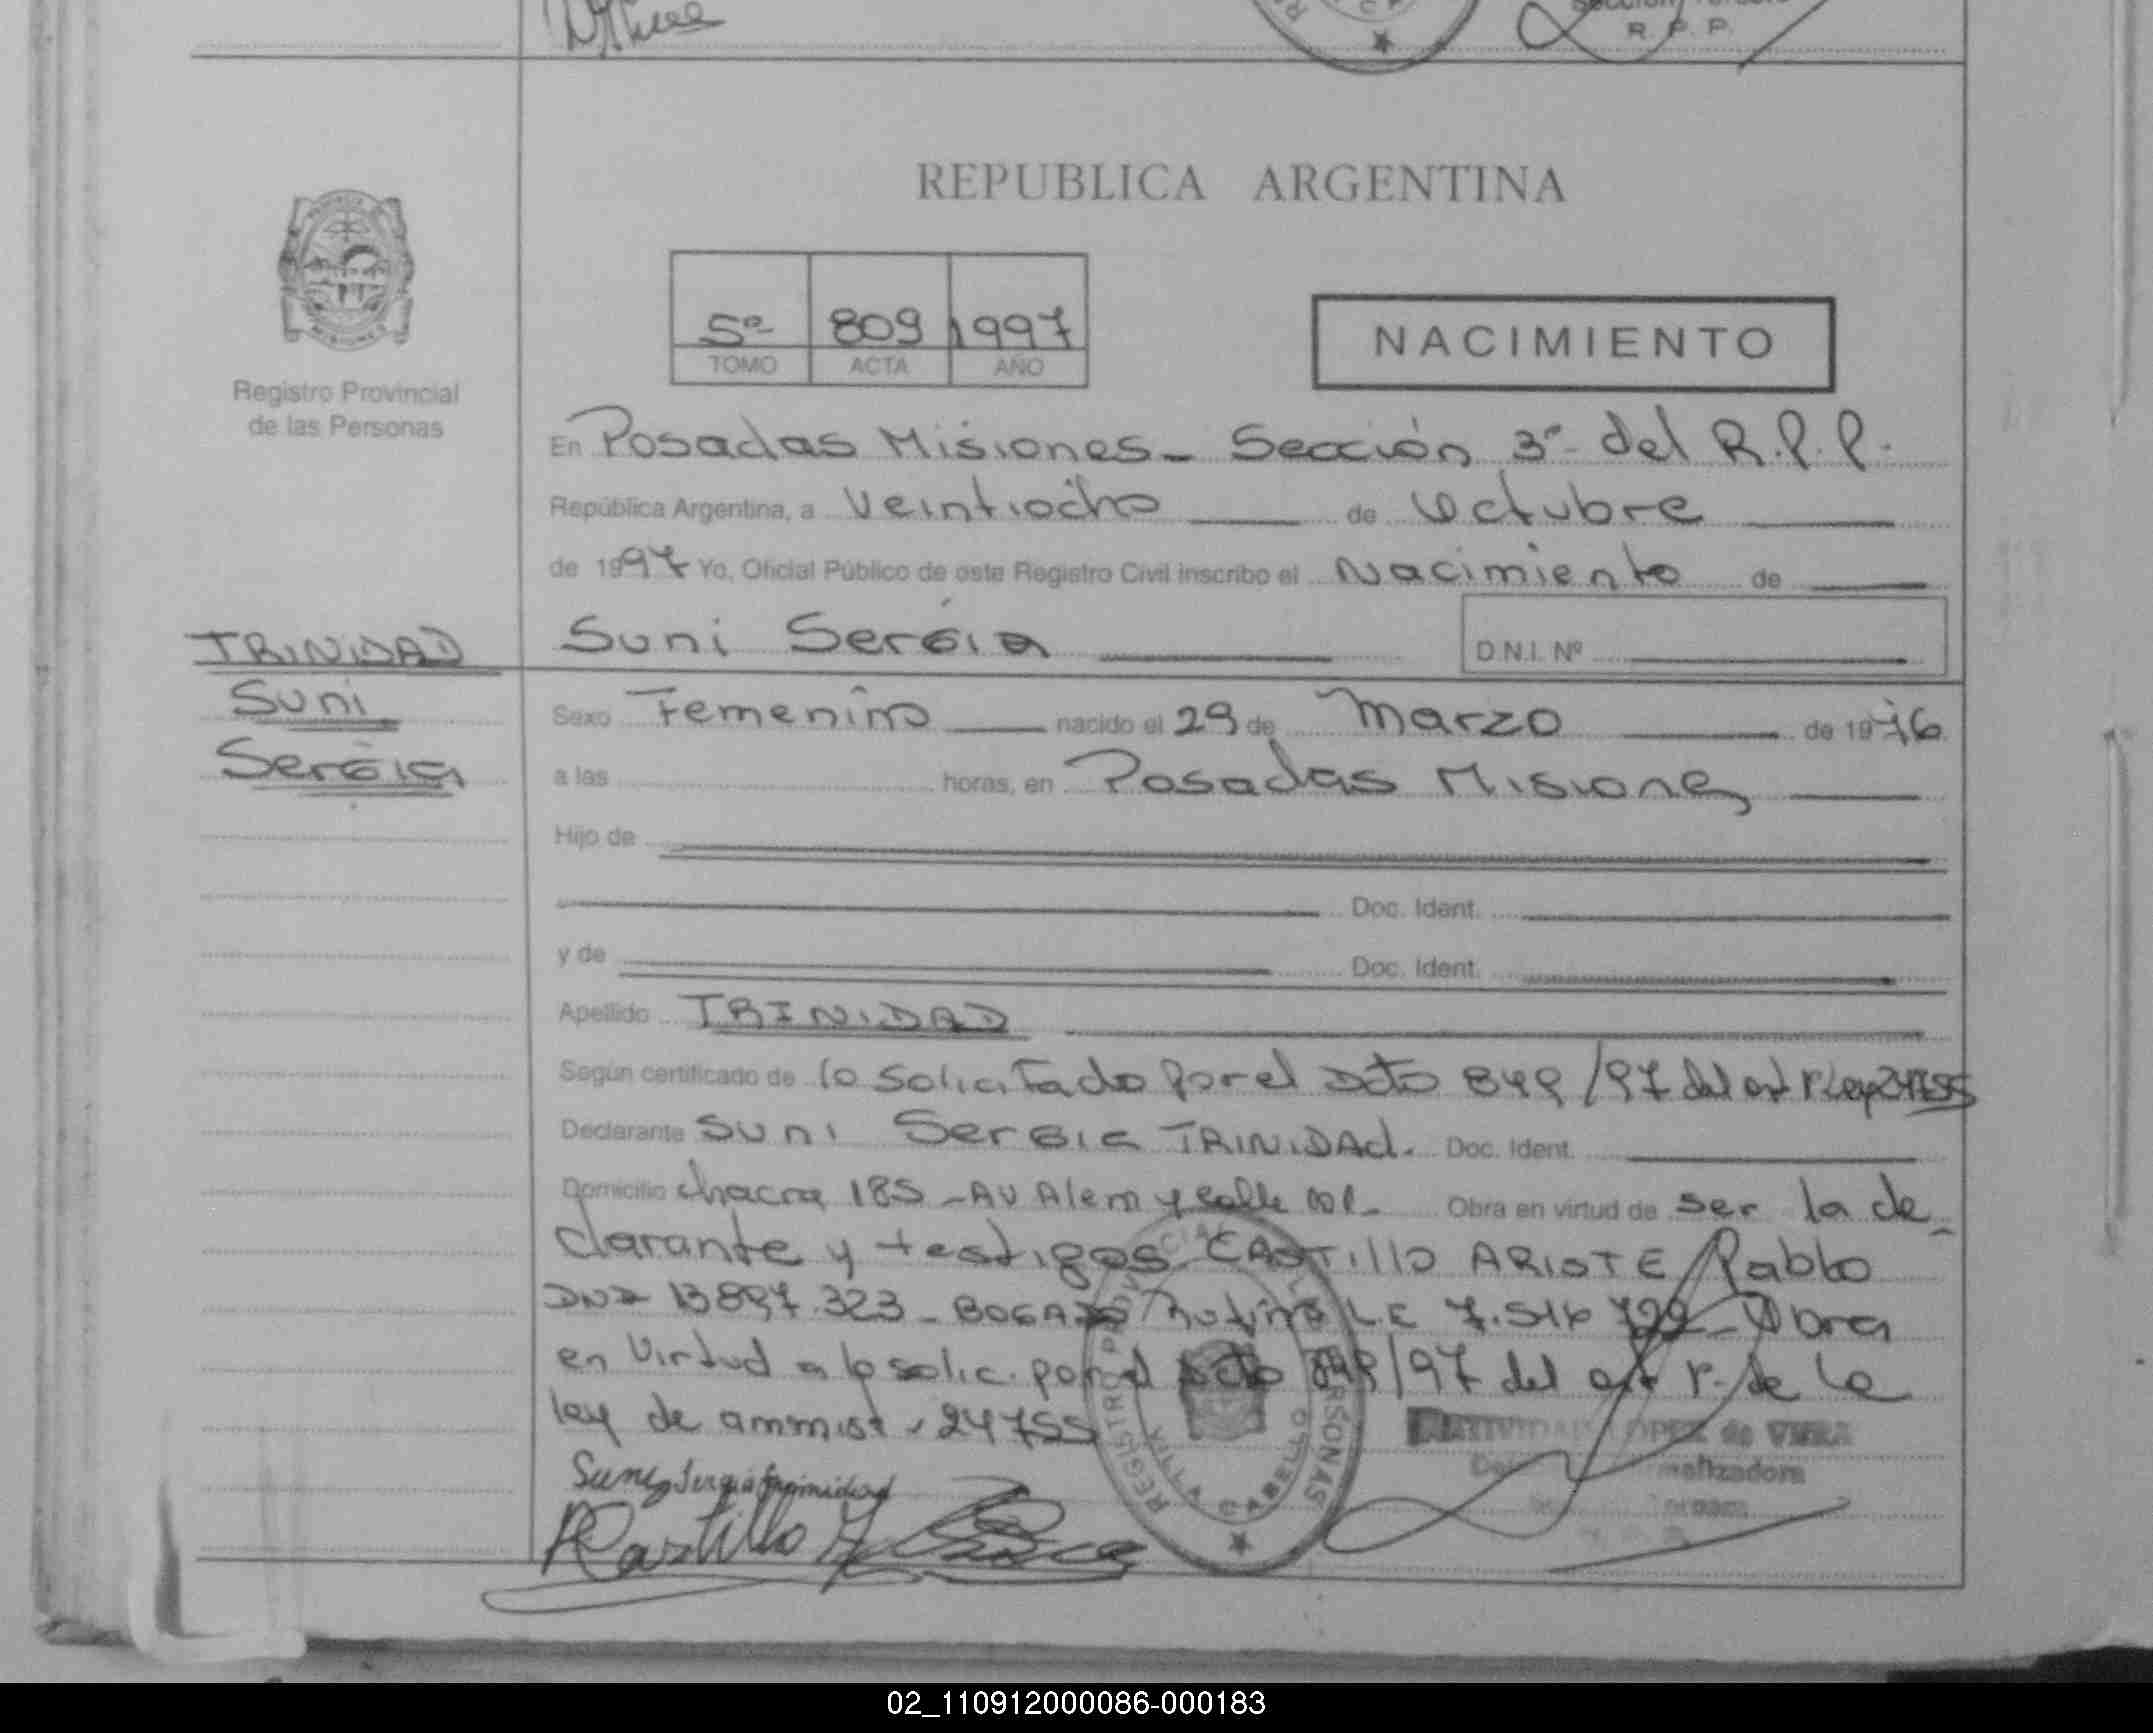 R. P. P.
REPUBLICA ARGENTINA
5º 809 1997
TOMO ACTA AÑO
NACIMIENTO
Registro Provincial
de las Personas
En Posadas Misiones - Sección 3ª del R.P.P.
República Argentina, a Veintiocho de Octubre
de 1997 Yo, Oficial Público de este Registro Civil inscribo el Nacimiento de
TRINIDAD
Suni
Sergia
Suni Sergia
D.N.I. Nº
Sexo Femenino nacido el 29 de Marzo de 1976
a las horas, en Posadas Misiones
Hijo de
Doc. Ident.
y de Doc. Ident.
Apellido TRINIDAD
Según certificado de lo solicitado por el Dcto 849/97 del art 1º Ley 24755
Declarante Suni Sergia TRINIDAD. Doc. Ident.
Domicilio chacra 185 - AV Alem y Calle Obra en virtud de ser la de-
clarante y testigos CASTILLO ARISTE Pablo
DNI 13897.323 - BOGADO Rufino L.E 7.516 722 - Obra
en Virtud a lo solic. por el Dcto 849/97 del art 1º de la
ley de ammist. 24755
REGISTRO PROVINCIAL DE LAS PERSONAS
VILLA CABELLO
LOPEZ de VIERA
Suni Sergia Trinidad
Castillo
02_110912000086-000183